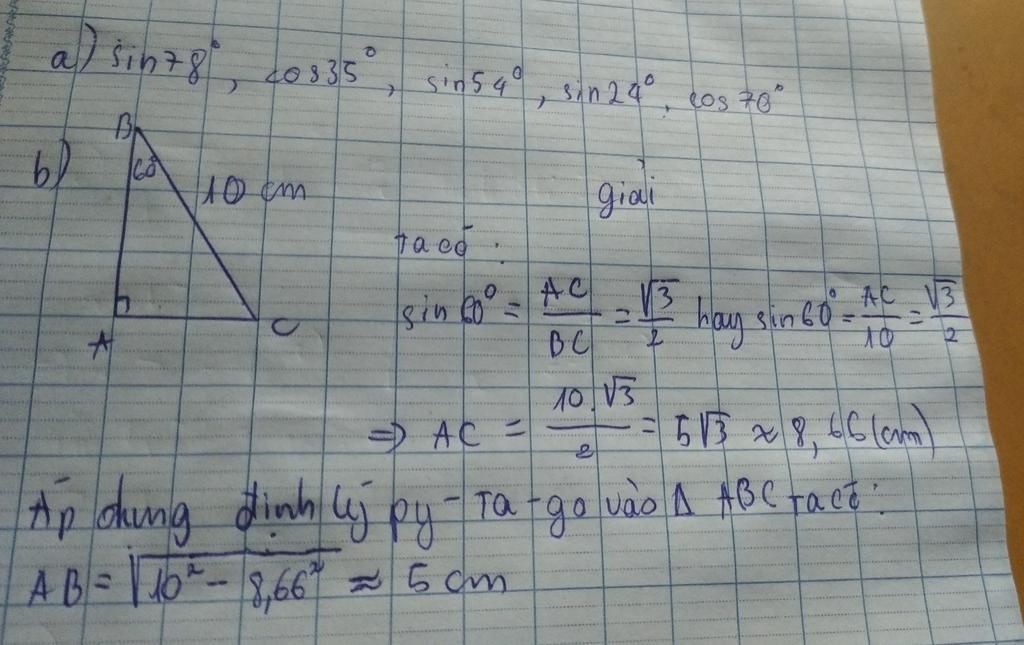 a) sin78°, cos35°, sin54°, sin24°, cos70°
b)
B
60°
10 cm
A
C
giải
ta có :
sin60° = AC/BC = √3/2 hay sin60° = AC/10 = √3/2
=> AC = 10.√3/2 = 5√3 ≈ 8,66 (cm)
Áp dụng định lý py-ta-go vào Δ ABC ta có:
AB = √10² - 8,66² ≈ 5 cm